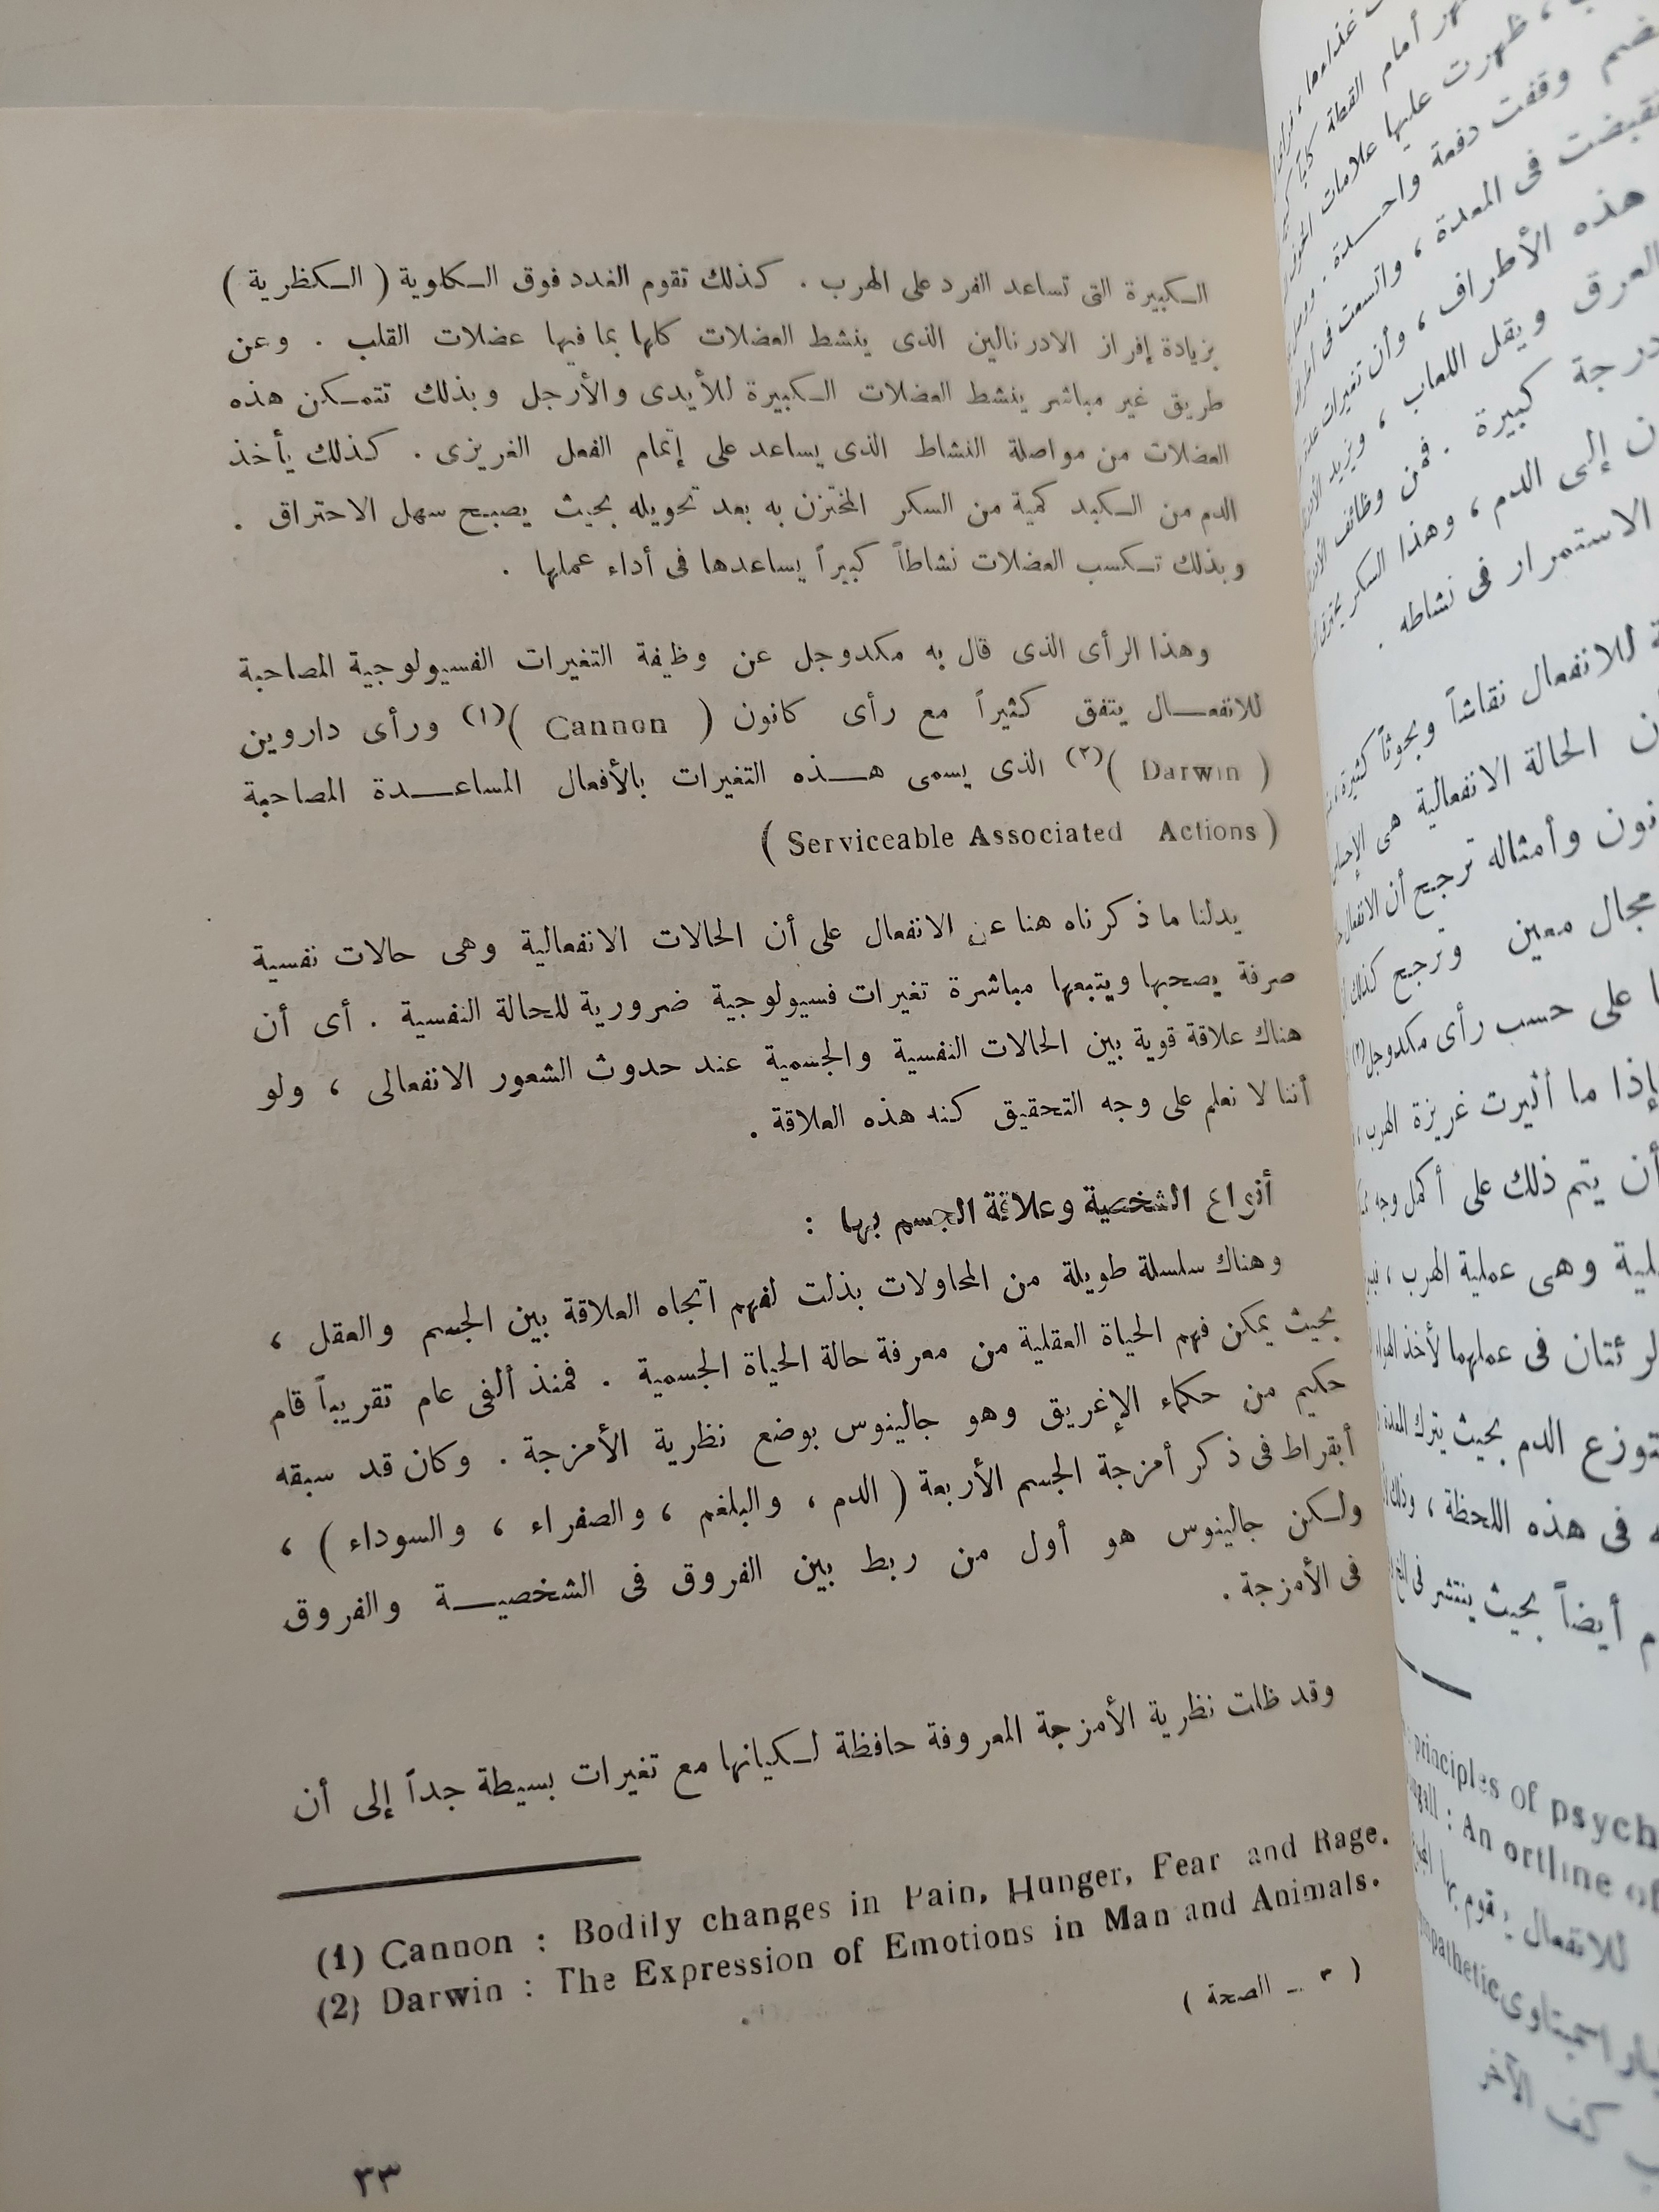 الكبيرة التى تساعد الفرد على الهرب . كذلك تقوم الغدد فوق الكلوية ( الكظرية )
بزيادة إفراز الادرنالين الذى ينشط العضلات كلها بما فيها عضلات القلب . وعن
طريق غير مباشر ينشط العضلات الكبيرة للأيدى والأرجل وبذلك تتمكن هذه
العضلات من مواصلة النشاط الذى يساعد على إتمام الفعل الغريزى . كذلك يأخذ
الدم من الكبد كمية من السكر المختزن به بعد تحويله بحيث يصبح سهل الاحتراق .
وبذلك تكسب العضلات نشاطاً كبيراً يساعدها فى أداء عملها .
وهذا الرأى الذى قال به مكدوجل عن وظيفة التغيرات الفسيولوجية المصاحبة
للانفعال يتفق كثيراً مع رأى كانون ( Cannon )(١) ورأى داروين
( Darwin )(٢) الذى يسمى هذه التغيرات بالأفعال المساعدة المصاحبة
( Serviceable Associated Actions )
يدلنا ما ذكرناه هنا عن الانفعال على أن الحالات الانفعالية وهى حالات نفسية
صرفة يصحبها ويتبعها مباشرة تغيرات فسيولوجية ضرورية للحالة النفسية . أى أن
هناك علاقة قوية بين الحالات النفسية والجسمية عند حدوث الشعور الانفعالى ، ولو
أننا لا نعلم على وجه التحقيق كنه هذه العلاقة .
أنواع الشخصية وعلاقة الجسم بها :
وهناك سلسلة طويلة من المحاولات بذلت لفهم اتجاه العلاقة بين الجسم والعقل ،
بحيث يمكن فهم الحياة العقلية من معرفة حالة الحياة الجسمية . فمنذ ألفى عام تقريباً قام
حكيم من حكماء الإغريق وهو جالينوس بوضع نظرية الأمزجة . وكان قد سبقه
أبقراط فى ذكر أمزجة الجسم الأربعة ( الدم ، والبلغم ، والصفراء ، والسوداء ) ،
ولكن جالينوس هو أول من ربط بين الفروق فى الشخصية والفروق
فى الأمزجة .
وقد ظلت نظرية الأمزجة المعروفة حافظة لكيانها مع تغيرات بسيطة جداً إلى أن
(1) Cannon : Bodily changes in Pain, Hunger, Fear and Rage.
(2) Darwin : The Expression of Emotions in Man and Animals.
( ٣ ــ الصحة )
٣٣
أمام القطة
ظهرت عليها علامات
وقفت دفعة واحدة .
فى المعدة ، واتسعت فى
هذه الأطراف ، وأن تغيرات
العرق ويقل اللعاب ، ويزيد
درجة كبيرة . فمن وظائف
إلى الدم ، وهذا السكر
الاستمرار فى نشاطه .
للانفعال نقاشاً وبحوثاً كثيرة
الحالة الانفعالية هى
وأمثاله ترجح أن
مجال معين وترجح كذلك
على حسب رأى مكدوجل(٢)
إذا ما أثيرت غريزة الهرب ،
أن يتم ذلك على أكمل وجه
وهى عملية الهرب ،
فى عملهما لأخذ
الدم بحيث يترك المعدة
فى هذه اللحظة ،
أيضاً بحيث ينتشر فى
principles of psych
: An ortline of
للانفعال يقوم بها
كف الآخر